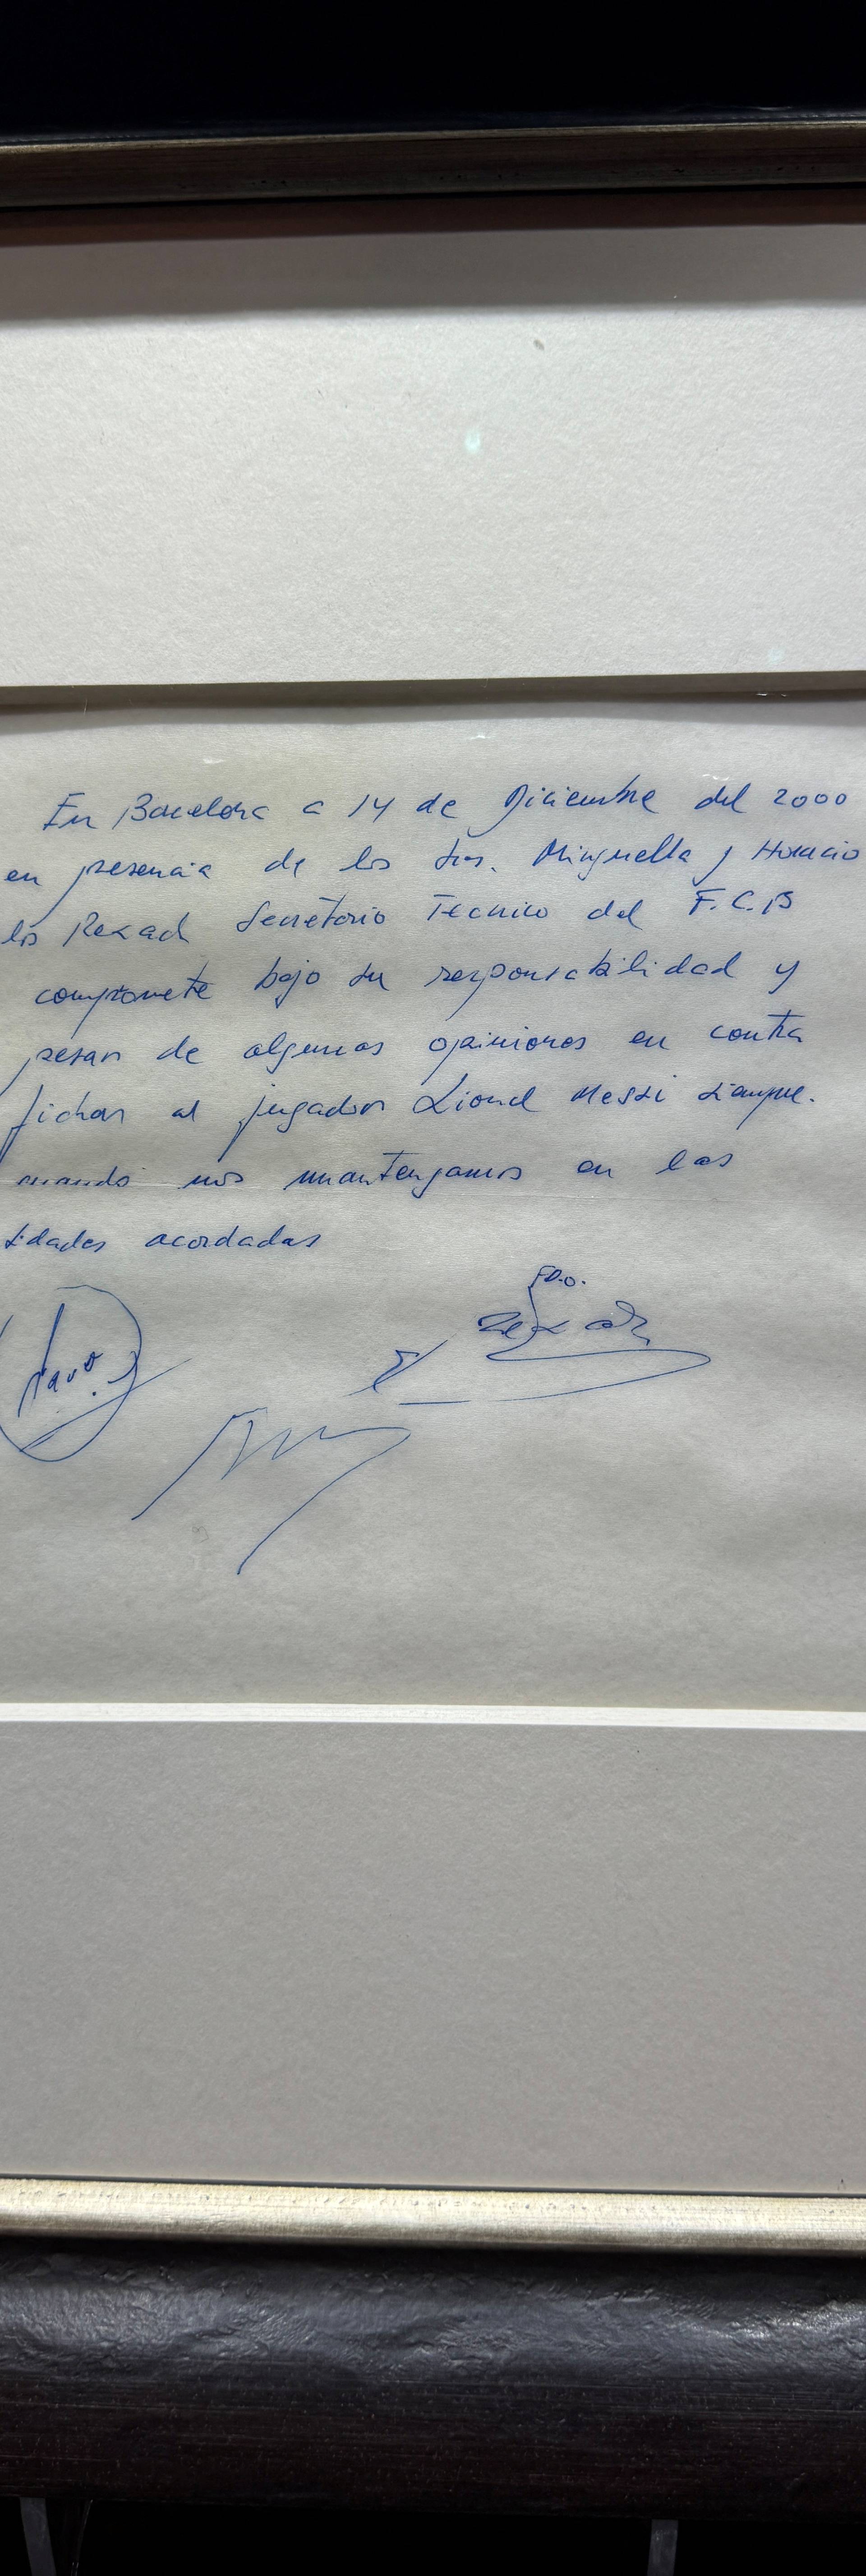 En Barcelona a 14 de Diciembre del 2000
en presencia de los Srs. Minguella y Horacio
los Rexach Secretario Tecnico del F.C.B
compromete bajo su responsabilidad y
pesar de algunas opiniones en contra
fichar al jugador Lionel Messi siempre.
cuando nos mantengamos en las
tidades acordadas
FDO.
Rexach